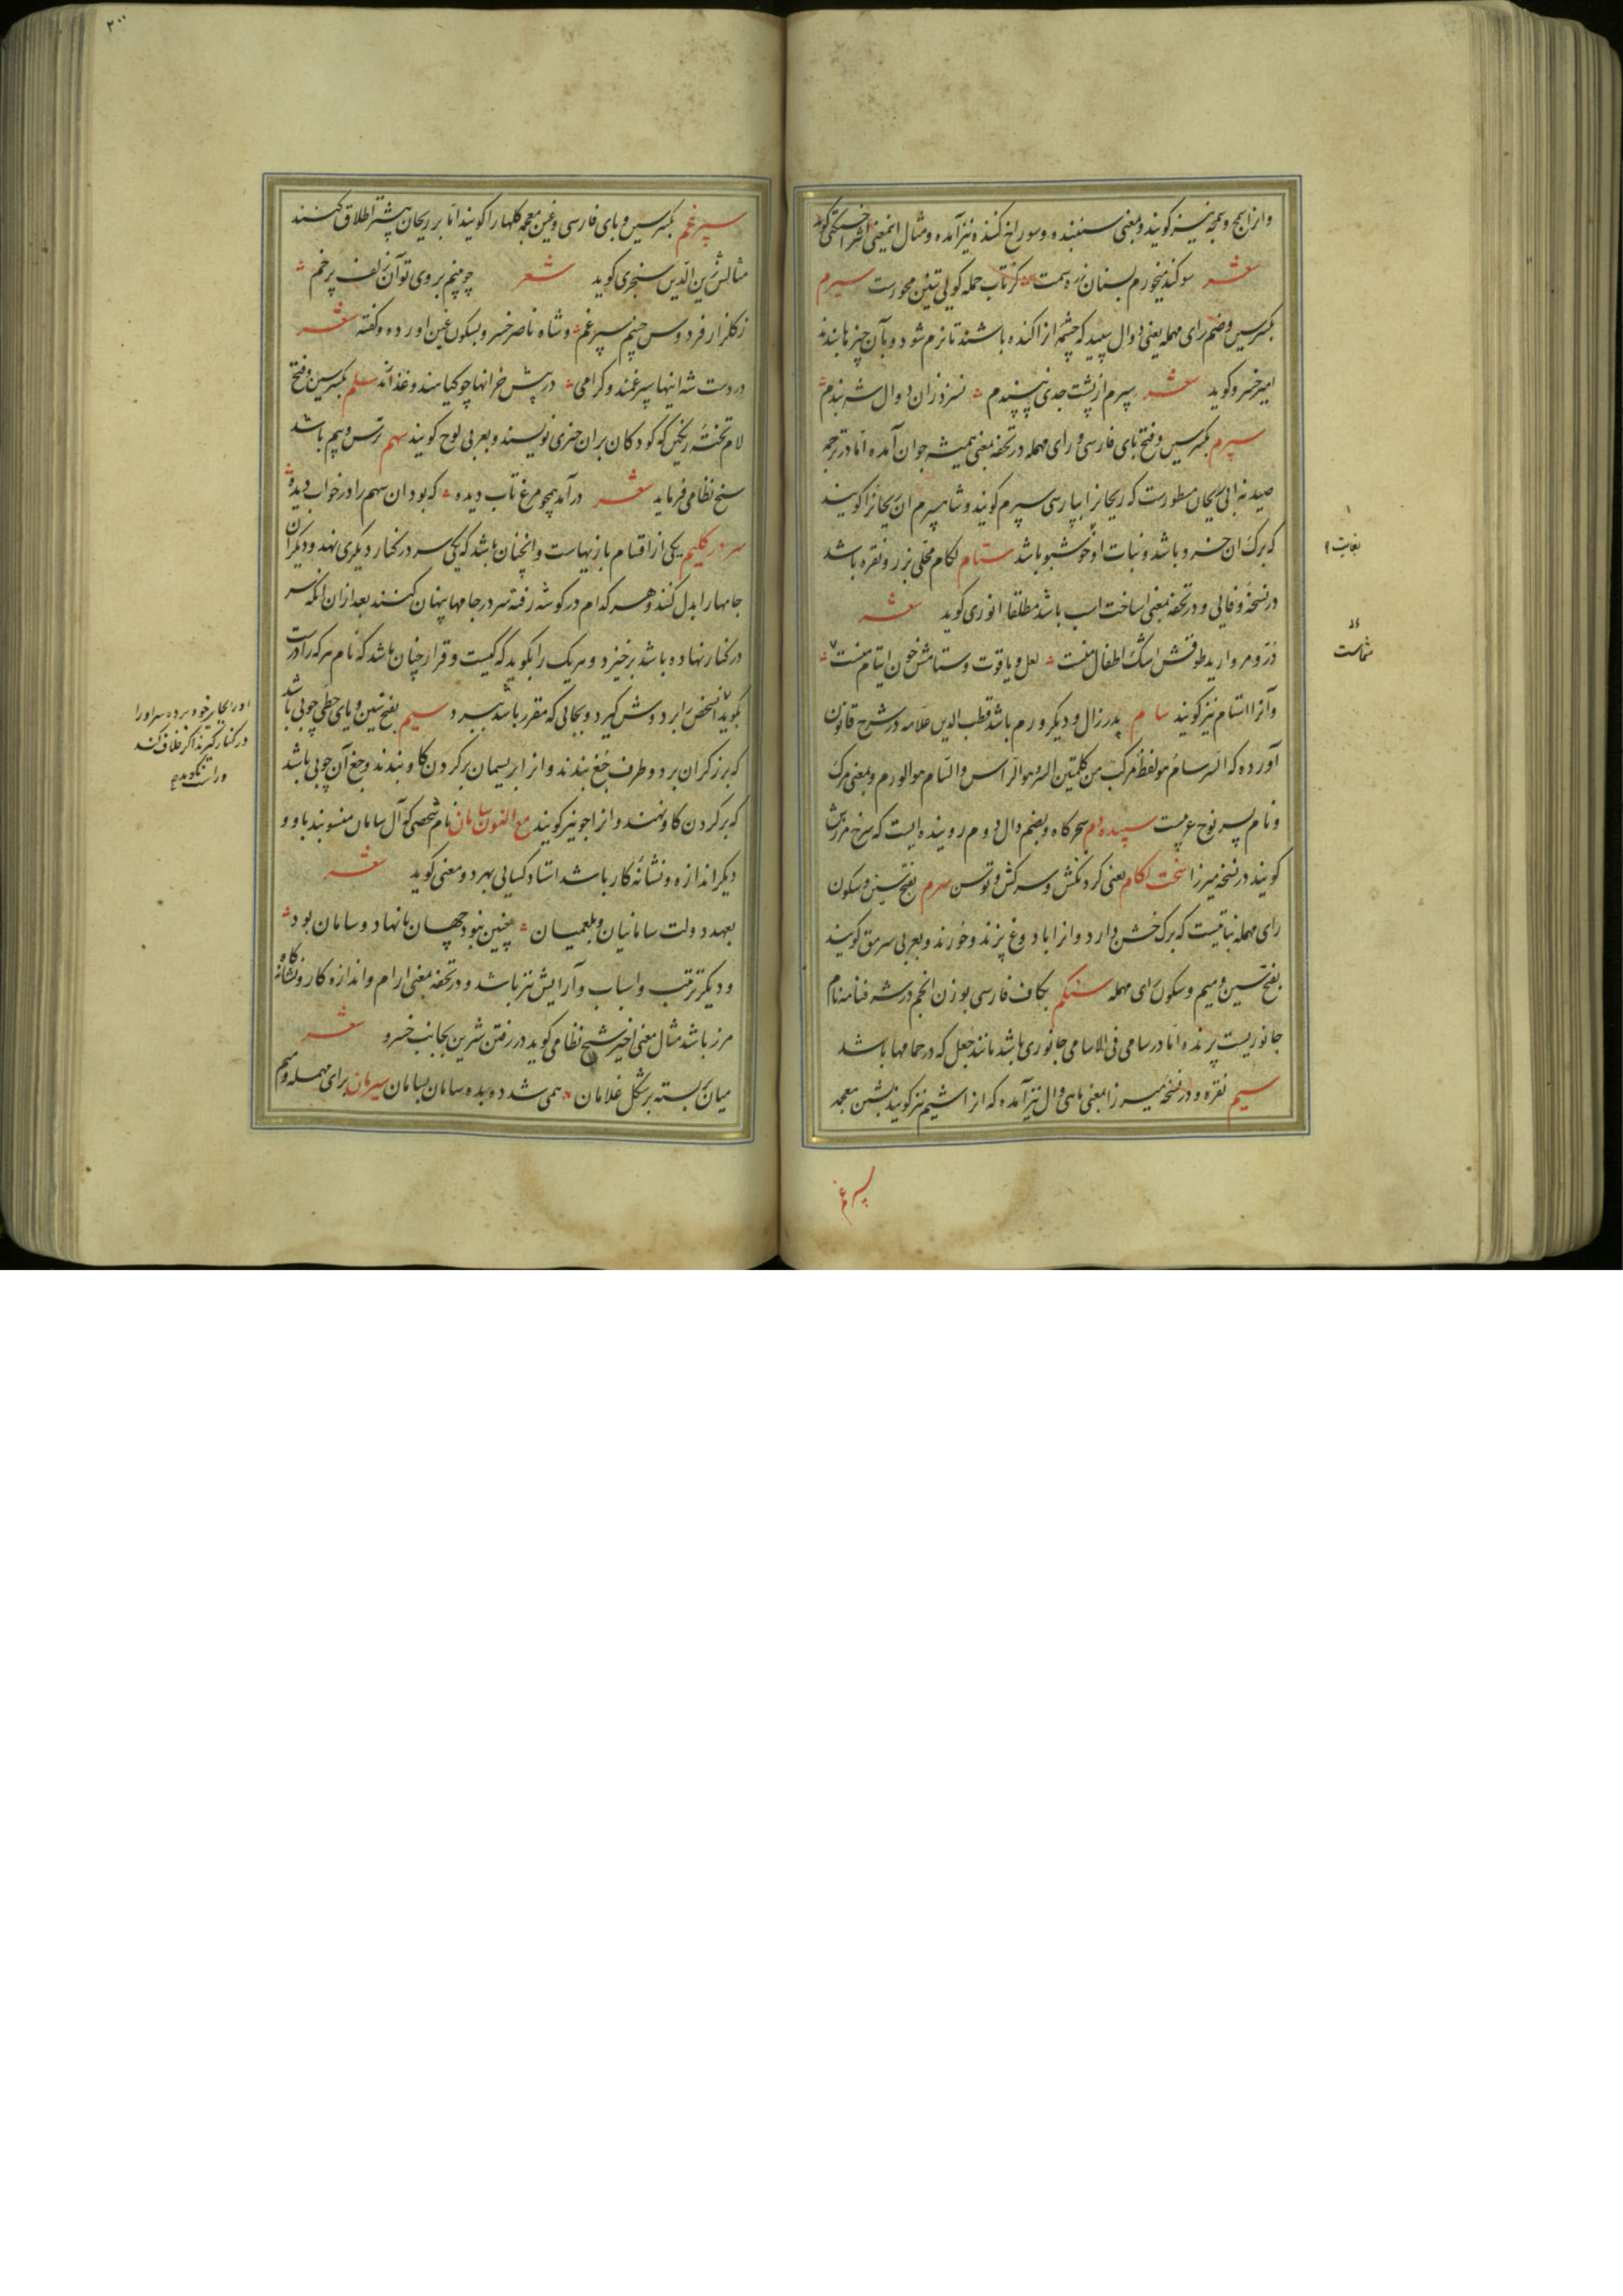 وانرا سمج و سمجه نیز کویند و بمعنی سنبنده و سوراخ کننده نیز آمده و مثال اینمعنی را اثر اخسیکتی کوید
شعر سوکند میخورم بسنان زره سمت کز تاب حمله کوئی تنین محورست سیرم
بکسر سین و ضم رای مهمله یعنی دوال سپید که چشم ازاکنده باشند تا نرم شود و بآن چیزها بندند
امیر خسرو کوید شعر سیرم از پشت جدی پیچندم نسزد زان دوال شه بندم
سپرم بکسر سین و فتح بای فارسی و رای مهمله در تحفه بمعنی همیشه جوان آمده اما در ترجمه
صیدنه ابی ریحان مسطورست که ریحانرا بپارسی سپرم کویند و شاه سپرم آن ریحانرا کویند
که برک آن خرد باشد و نبات او خوشبو باشد ستام لکام محلی بزر و نقره باشد
در نسخهٔ وفائی و در تحفه بمعنی ساخت اسب باشد مطلقا انوری کوید شعر
در و مروارید طوقش اشک اطفال منست لعل و یاقوت ستامش خون ایتام منست
وآنرا استام نیز کویند سام پدر زال و دیکر ورم باشد قطب الدین علامه در شرح قانون
آورده که السرسام هو لفظ مرکب من کلمتین السر هو الراس والسام هو الورم و بمعنی مرک
و نام پسر نوح ع پست سپیده دم سحرکاه و بضم دال دوم روینده ایست که سرخ مردش
کویند در نسخه میرزا سخت لکام یعنی کردنکش و سرکش و توسن سرم بفتح سین و سکون
رای مهمله نباتیست که برک خشن دارد و انرا با دوغ پزند و خورند و بعربی سرمق کویند
بفتح سین و میم و سکون رای مهمله سنکم بکاف فارسی بوزن انجم در شرفنامه نام
جانوریست پرنده اما در سامی فی الاسامی جانوری باشد مانند جعل که در حمامها باشد
سیم نقره و در نسخه میرزا بمعنی ماهی وال نیز آمده که انرا شیم نیز کویند بشین معجمه
سپرغم
بغایت
شماست
۲۰۰
سپرغم بکسر سین و بای فارسی و غین معجمه کلها را کویند اما بر ریحان پیشتر اطلاق کنند
مثالش زین الدین سنجری کوید شعر چو بینم بر وی تو آن زلف پر خم
ز کلزار فردوس چینم سپرغم و شاه ناصر خسرو بسکون غین آورده و کفته شعر
در دست شه اینها سپرغمند و کرامی در پیش خر انها چو کیاهند و غذااند سلم بکسر سین و فتح
لام تختهٔ که کودکان بران چیزی نویسند و بعربی لوح کویند سهم ترس و بیم باشد
شیخ نظامی فرماید شعر درآمد همچو مرغ تاب دیده که بود آن سهم را در خواب دیده
سر در کلیم یکی از اقسام بازیهاست و آنچنان باشد که یکی سر در کنار دیکری نهد و دیکران
جامها را بدل کنند و هر کدام در کوشه رفته سر در جامها پنهان کنند بعد ازان آنکه سر
در کنار نهاده باشد برخیزد و هر یک را بکوید که کیست و قرار چنان باشد که نام هر که را درست
بکوید آنشخص را بر دوش کیرد و بجائی که مقرر باشد ببرد سیم بفتح سین و یای حطی چوبی باشد
که برزکران بر دو طرف جغ بندند و انرا بریسمان بر کردن کاو بندند و جغ آن چوبی باشد
که بر کردن کاو نهند و انرا جو نیز کویند مع النون سامان نام شخصی که آل سامان منسوبند باو و
دیکر اندازه و نشانهٔ کار باشد استاد کسائی بهر دو معنی کوید شعر
بعهد دولت سامانیان و بلعمیان چنین نبود جهان با نهاد و سامان بود
و دیکر ترتیب و اسباب و آرایش نیز باشد و در تحفه بمعنی آرام و اندازه کار و نشانه کاه
مرز باشد مثال معنی اخیر شیخ نظامی کوید در رفتن شیرین بجانب خسرو شعر
میان بسته بر شکل غلامان همی شد ده بده سامان بسامان سیرمان برای مهمله و میم
او را بجای خود برده سر او را
در کنار کیرند اکر خلاف کند
و راست نکوید صح